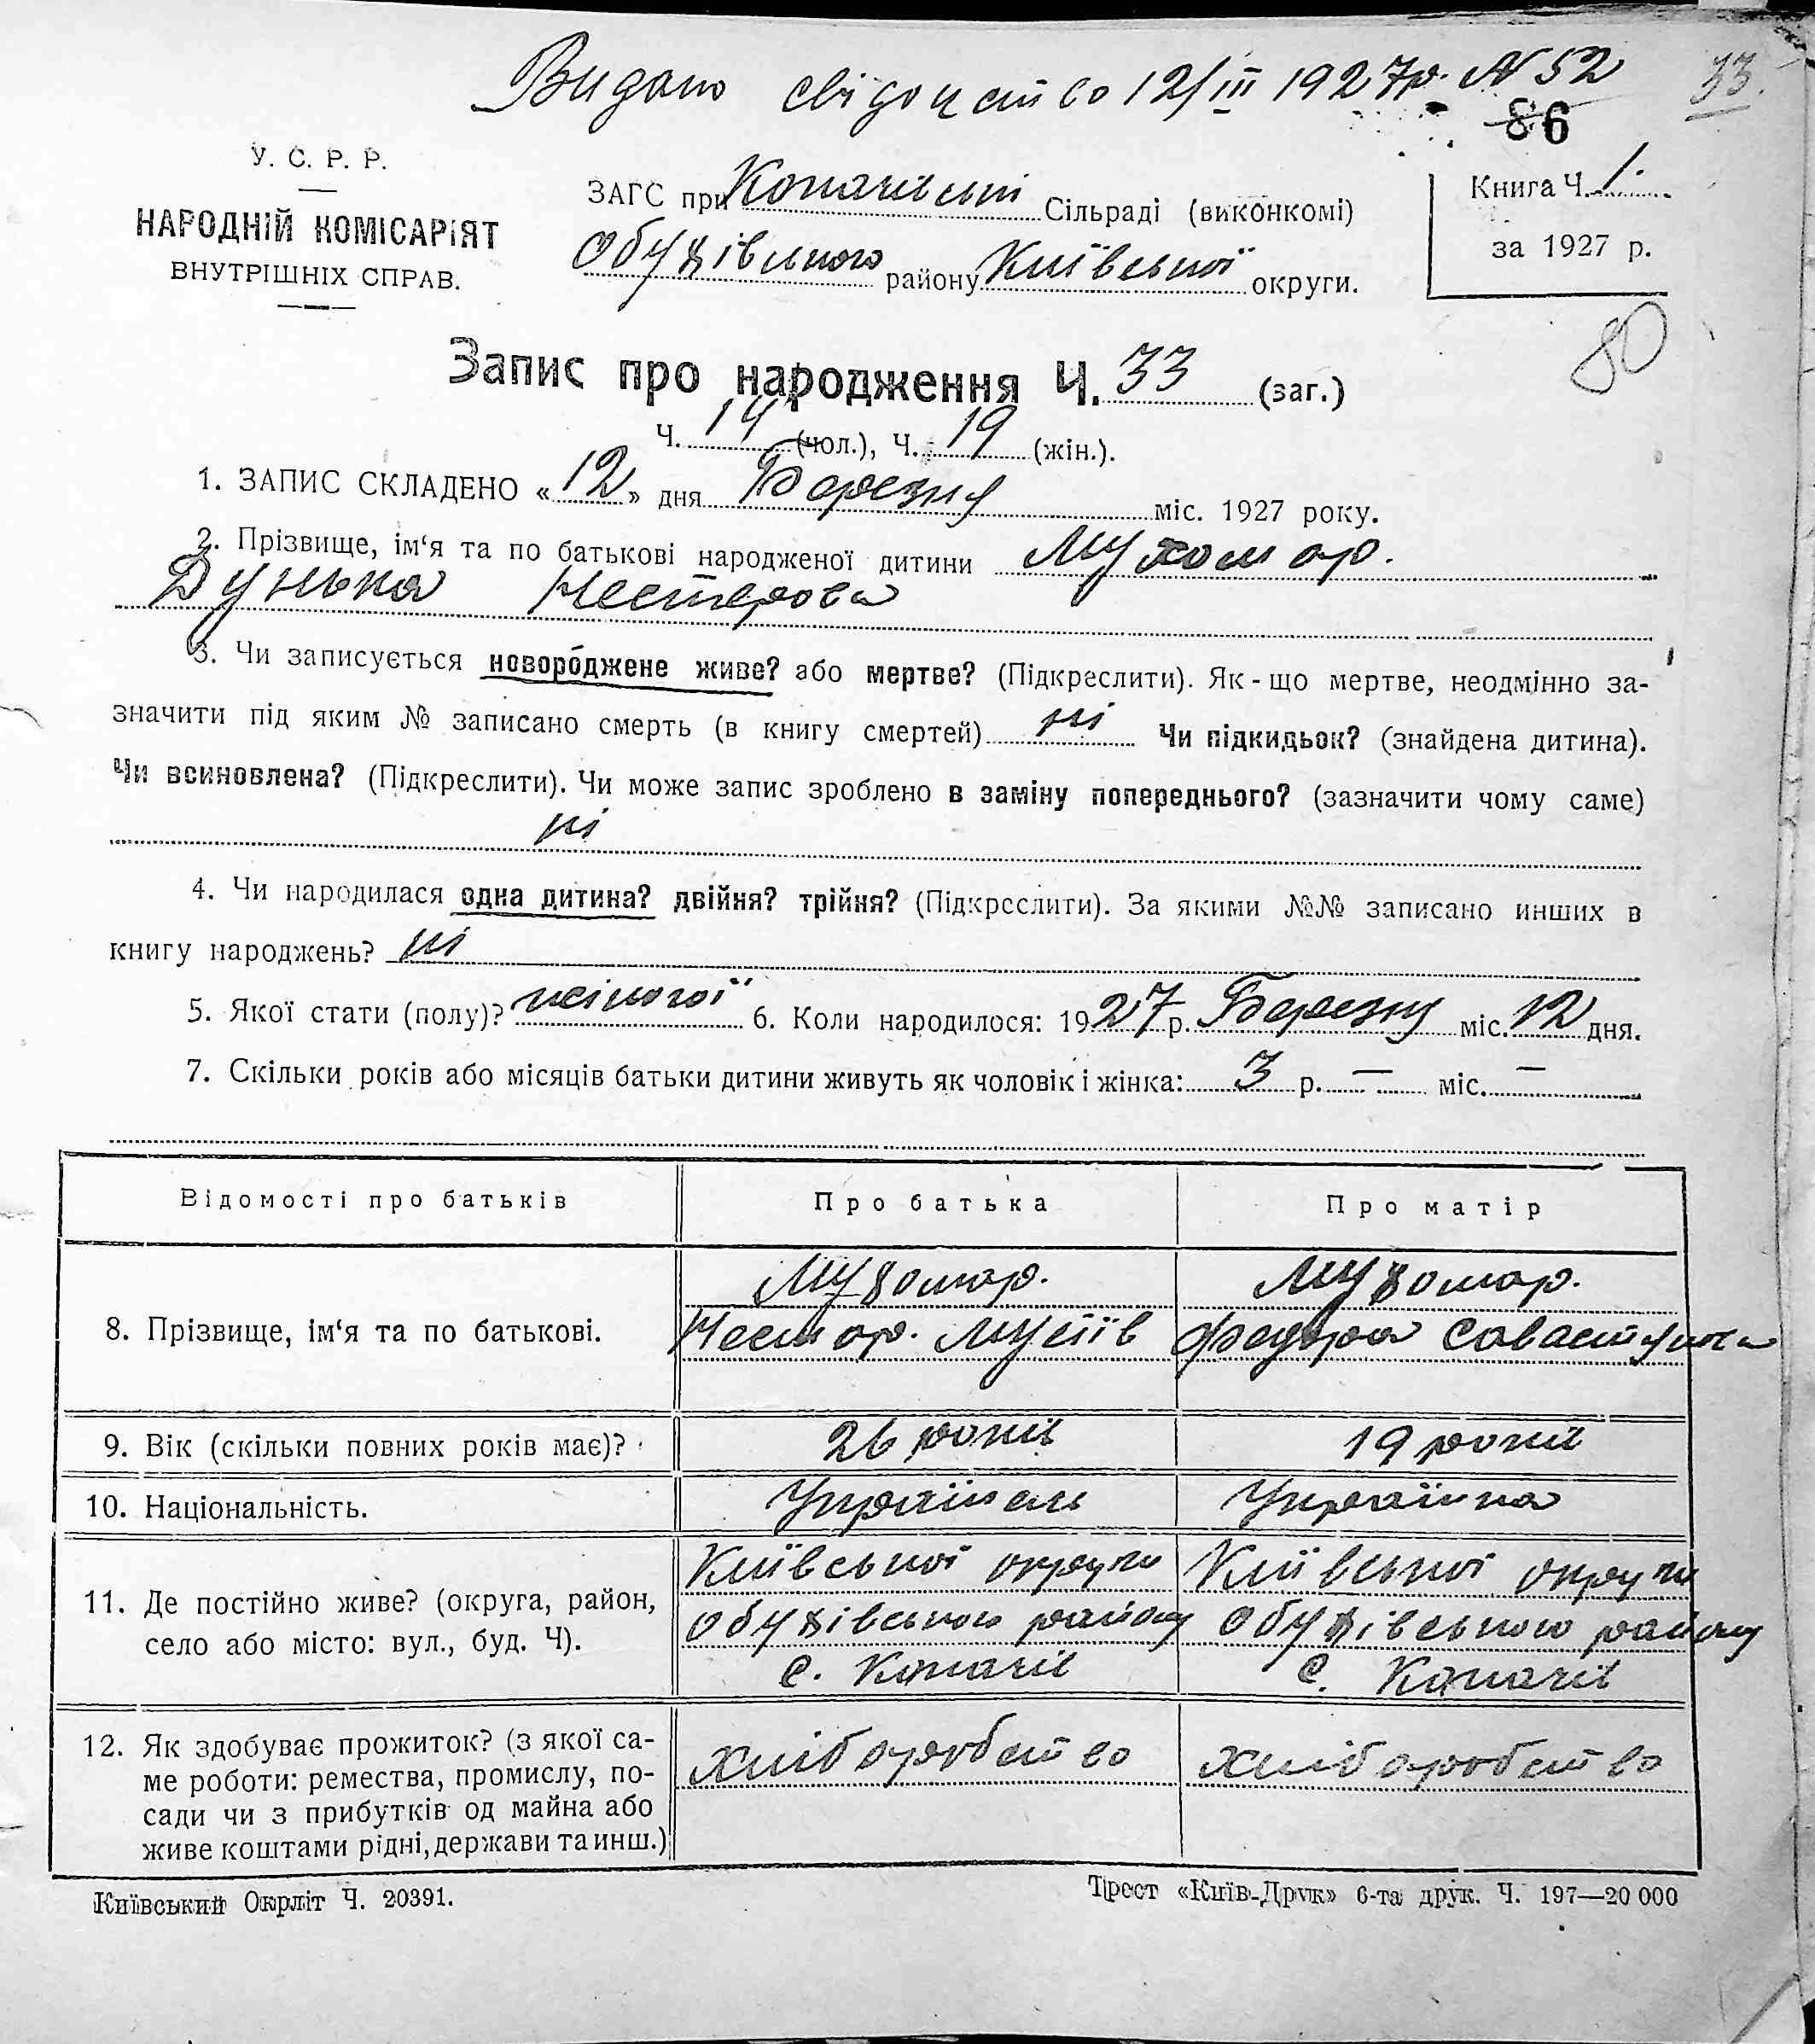 Видано свідоцтво 12/III 1927р. N 52
33.
86
У. С. Р. Р.
НАРОДНІЙ КОМІСАРІЯТ
ВНУТРІШНІХ СПРАВ.
ЗАГС при Копачівські Сільраді (виконкомі)
Обухівського району Київської округи.
Книга Ч. 1.
за 1927 р.
80
Запис про народження Ч. 33 (заг.)
Ч. 14 (чол.), Ч. 19 (жін.).
1. ЗАПИС СКЛАДЕНО « 12 » дня Березня міс. 1927 року.
2. Прізвище, ім‘я та по батькові народженої дитини Мухомор.
Дунька Несторова
3. Чи записується новороджене живе? або мертве? (Підкреслити). Як-що мертве, неодмінно за-
значити під яким № записано смерть (в книгу смертей) ні Чи підкидьок? (знайдена дитина).
Чи всиновлена? (Підкреслити). Чи може запис зроблено в заміну попереднього? (зазначити чому саме)
ні
4. Чи народилася одна дитина? двійня? трійня? (Підкреслити). За якими №№ записано инших в
книгу народжень? ні
5. Якої стати (полу)? жіночої 6. Коли народилося: 1927 р. Березня міс. 12 дня.
7. Скільки років або місяців батьки дитини живуть як чоловік і жінка: 3 р. — міс. —
Відомості про батьків Про батька Про матір
8. Прізвище, ім‘я та по батькові. Мухомор. Мухомор.
Нестор. Мусіїв Федора Савастунова
9. Вік (скільки повних років має)? 26 років 19 років
10. Національність. Українець Українка
11. Де постійно живе? (округа, район, село або місто: вул., буд. Ч). Київської округи Київської округи
Обухівського району Обухівського району
с. Копачів с. Копачів
12. Як здобуває прожиток? (з якої са-
ме роботи: ремества, промислу, по-
сади чи з прибутків од майна або
живе коштами рідні, держави та инш.) хліборобство хліборобство
Київський Окрліт Ч. 20391.
Трест «Київ-Друк» 6-та друк. Ч. 197—20 000